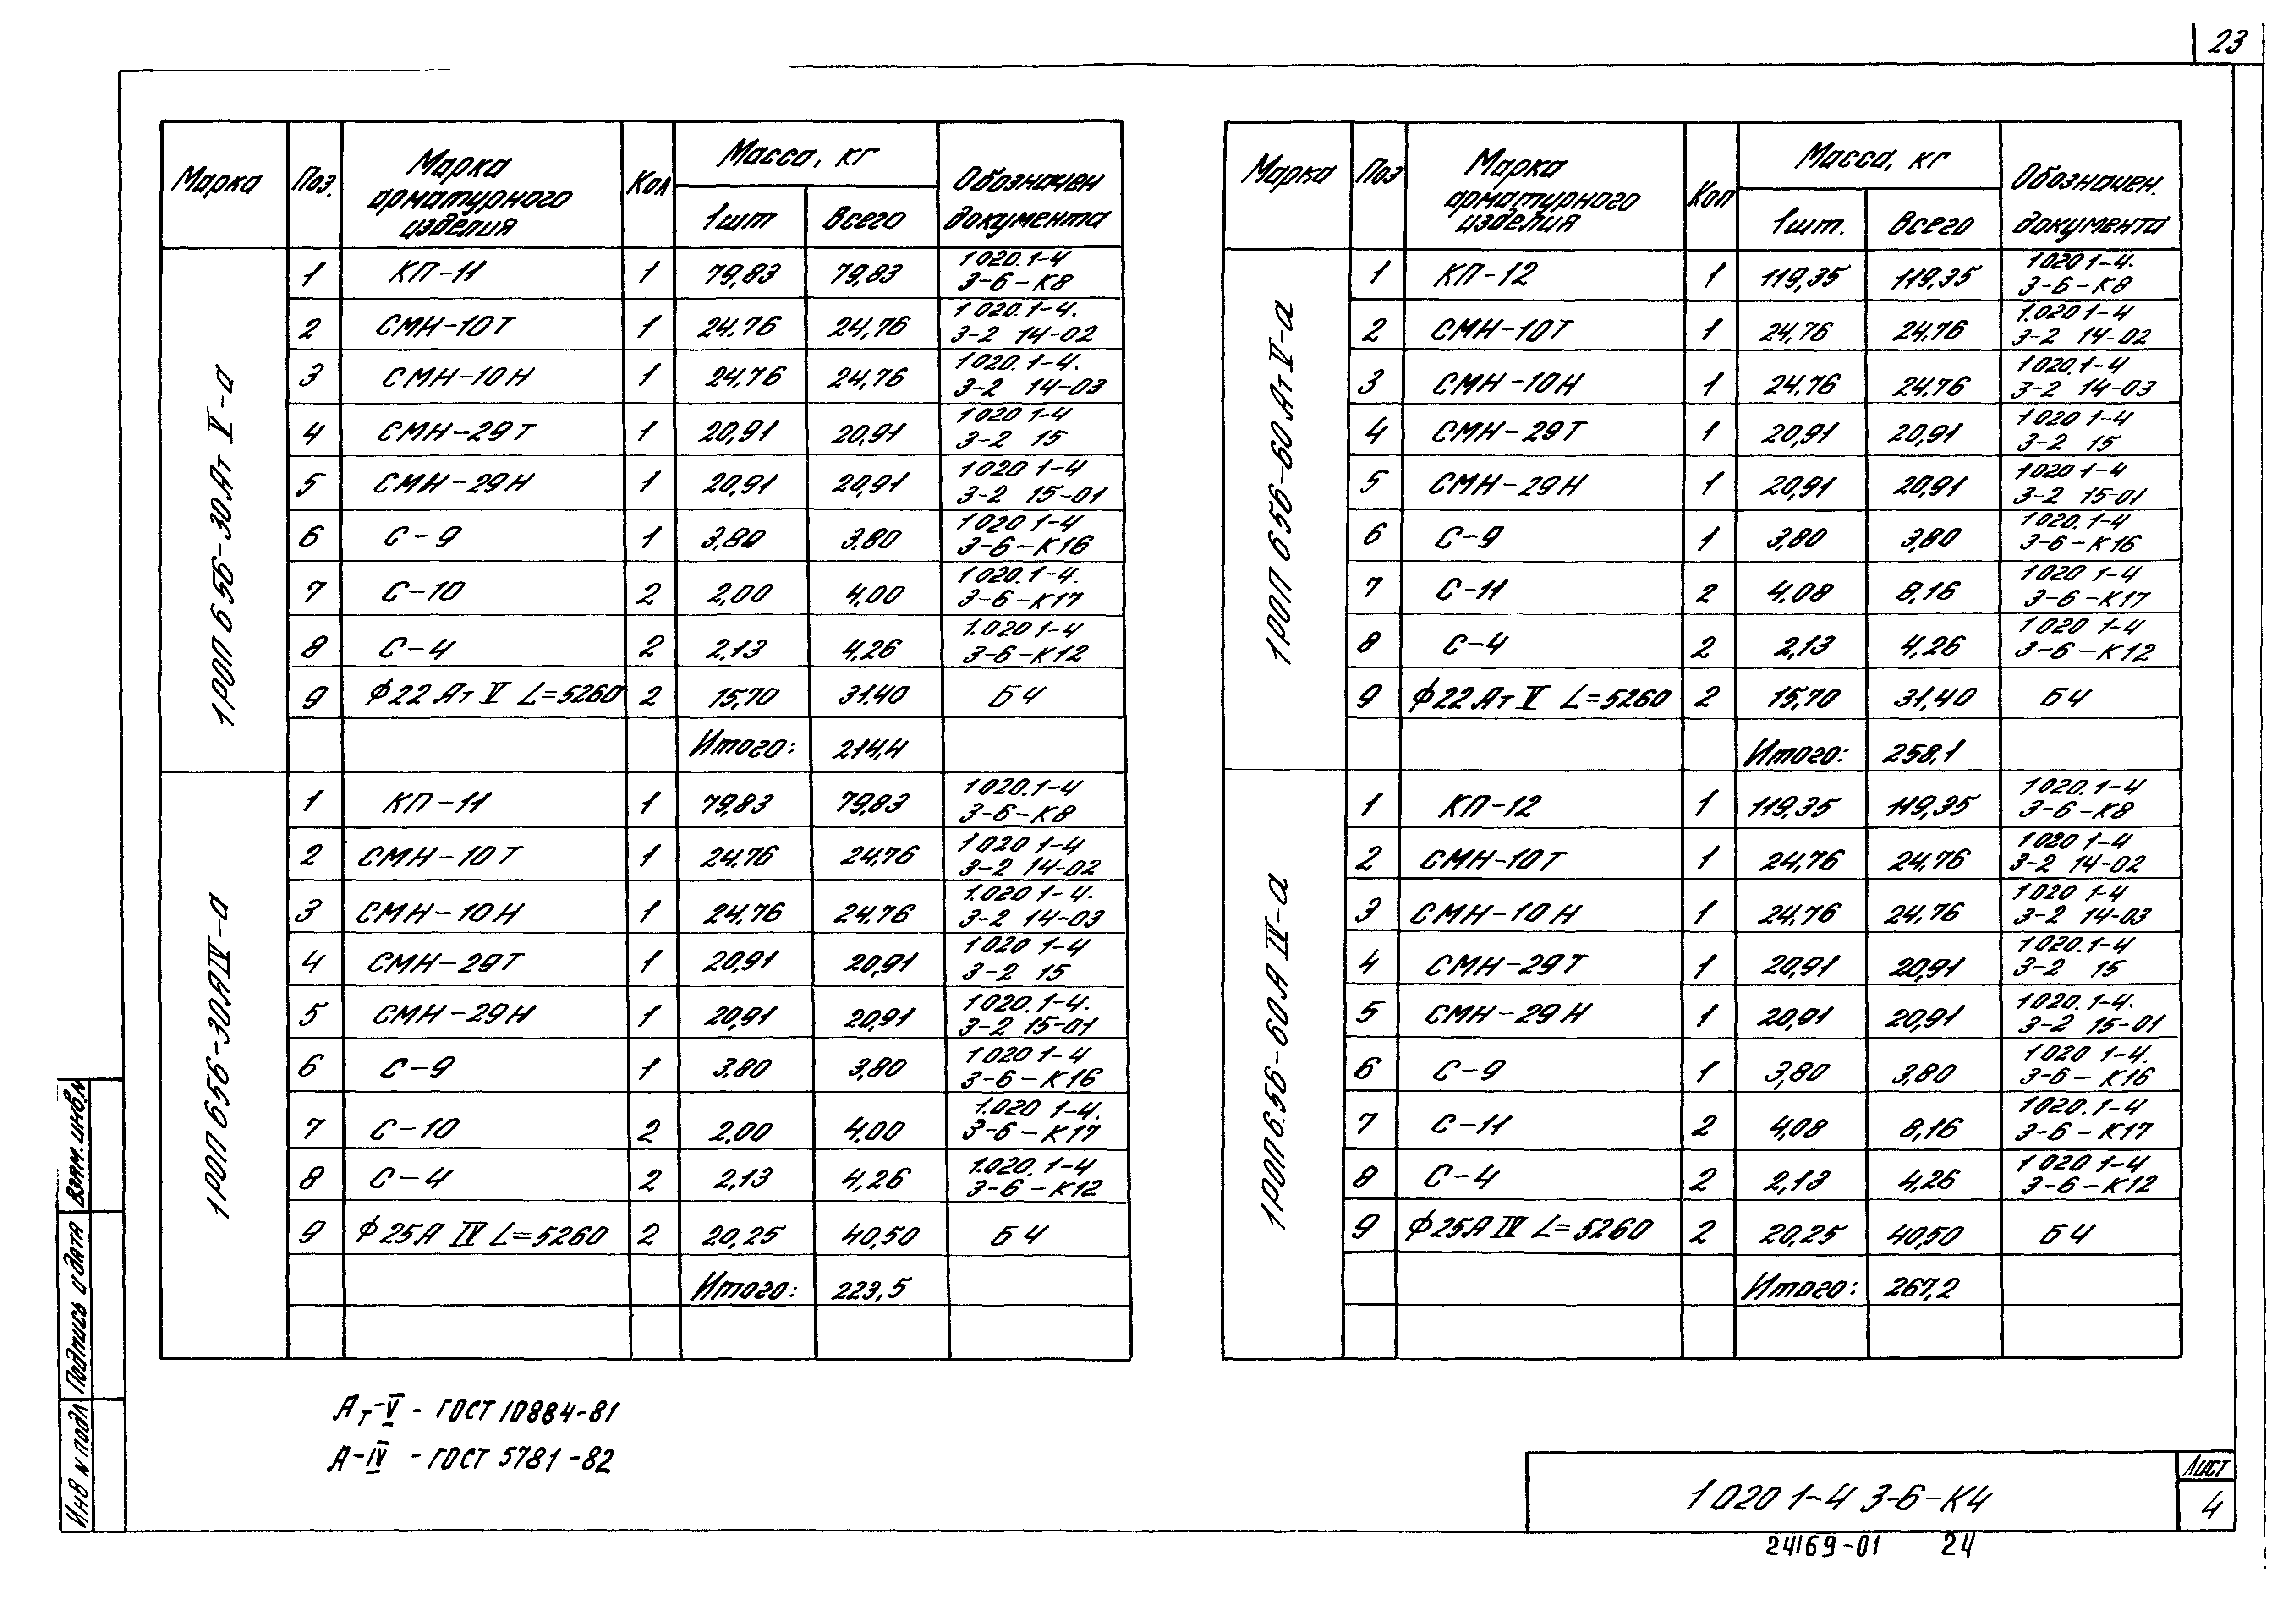 23
Марка Поз. Марка арматурного изделия Кол Масса, кг 1шт Всего Обозначен документа
1РОП 6 56-30Ат V-а
1 КП-11 1 79,83 79,83 1020.1-4 3-6-К8
2 СМН-10Т 1 24.76 24,76 1020.1-4. 3-2 14-02
3 СМН-10Н 1 24.76 24,76 1020.1-4. 3-2 14-03
4 СМН-29Т 1 20,91 20,91 1020 1-4 3-2 15
5 СМН-29Н 1 20,91 20,91 1020 1-4 3-2 15-01
6 С-9 1 3,80 3,80 1020 1-4 3-6-К16
7 С-10 2 2,00 4,00 1020.1-4. 3-6-К17
8 С-4 2 2,13 4,26 1.020 1-4 3-6-К12
9 ϕ22 Ат V L=5260 2 15,70 31.40 БЧ
Итого: 214,4
1РОП 6 56-30АIV-а
1 КП-11 1 79,83 79,83 1020.1-4 3-6-К8
2 СМН-10Т 1 24.76 24,76 1020 1-4 3-2 14-02
3 СМН-10Н 1 24,76 24.76 1.020 1-4. 3-2 14-03
4 СМН-29Т 1 20,91 20,91 1020 1-4 3-2 15
5 СМН-29Н 1 20,91 20,91 1020.1-4. 3-2 15-01
6 С-9 1 3.80 3,80 1020 1-4 3-6-К16
7 С-10 2 2,00 4,00 1.020 1-4. 3-6-К17
8 С-4 2 2,13 4,26 1.020. 1-4 3-6-К12
9 ϕ25А IV L=5260 2 20,25 40,50 БЧ
Итого: 223,5
Марка Поз Марка арматурного изделия Кол Масса, кг 1шт. Всего Обозначен. документа
1РОП 6 56-60 Ат V-а
1 КП-12 1 119,35 119,35 1020 1-4. 3-6-К8
2 СМН-10Т 1 24,76 24.76 1.020 1-4 3-2 14-02
3 СМН-10Н 1 24.76 24.76 1020.1-4 3-2 14-03
4 СМН-29Т 1 20,91 20,91 1020 1-4 3-2 15
5 СМН-29Н 1 20,91 20,91 1020 1-4 3-2 15-01
6 С-9 1 3,80 3,80 1020. 1-4 3-6-К16
7 С-11 2 4.08 8,16 1020 1-4 3-6-К17
8 С-4 2 2,13 4,26 1020 1-4 3-6-К12
9 ϕ22Ат V L=5260 2 15,70 31,40 БЧ
Итого: 258,1
1РОП6.56-60А IV-а
1 КП-12 1 119,35 119,35 1020.1-4 3-6-К8
2 СМН-10Т 1 24,76 24,76 1020 1-4 3-2 14-02
3 СМН-10Н 1 24.76 24.76 1020 1-4 3-2 14-03
4 СМН-29Т 1 20,91 20,91 1020.1-4 3-2 15
5 СМН-29Н 1 20,91 20,91 1020.1-4. 3-2 15-01
6 С-9 1 3,80 3,80 1020 1-4. 3-6-К16
7 С-11 2 4,08 8,16 1020.1-4 3-6-К17
8 С-4 2 2,13 4,26 1020 1-4 3-6-К12
9 ϕ25А IV L=5260 2 20,25 40,50 БЧ
Итого: 267,2
Ат-V - ГОСТ 10884-81
А-IV - ГОСТ 5781-82
Инв N подл Подпись и дата Взам. инв.N
1 020 1-4 3-6-К4
Лист
4
24169-01 24